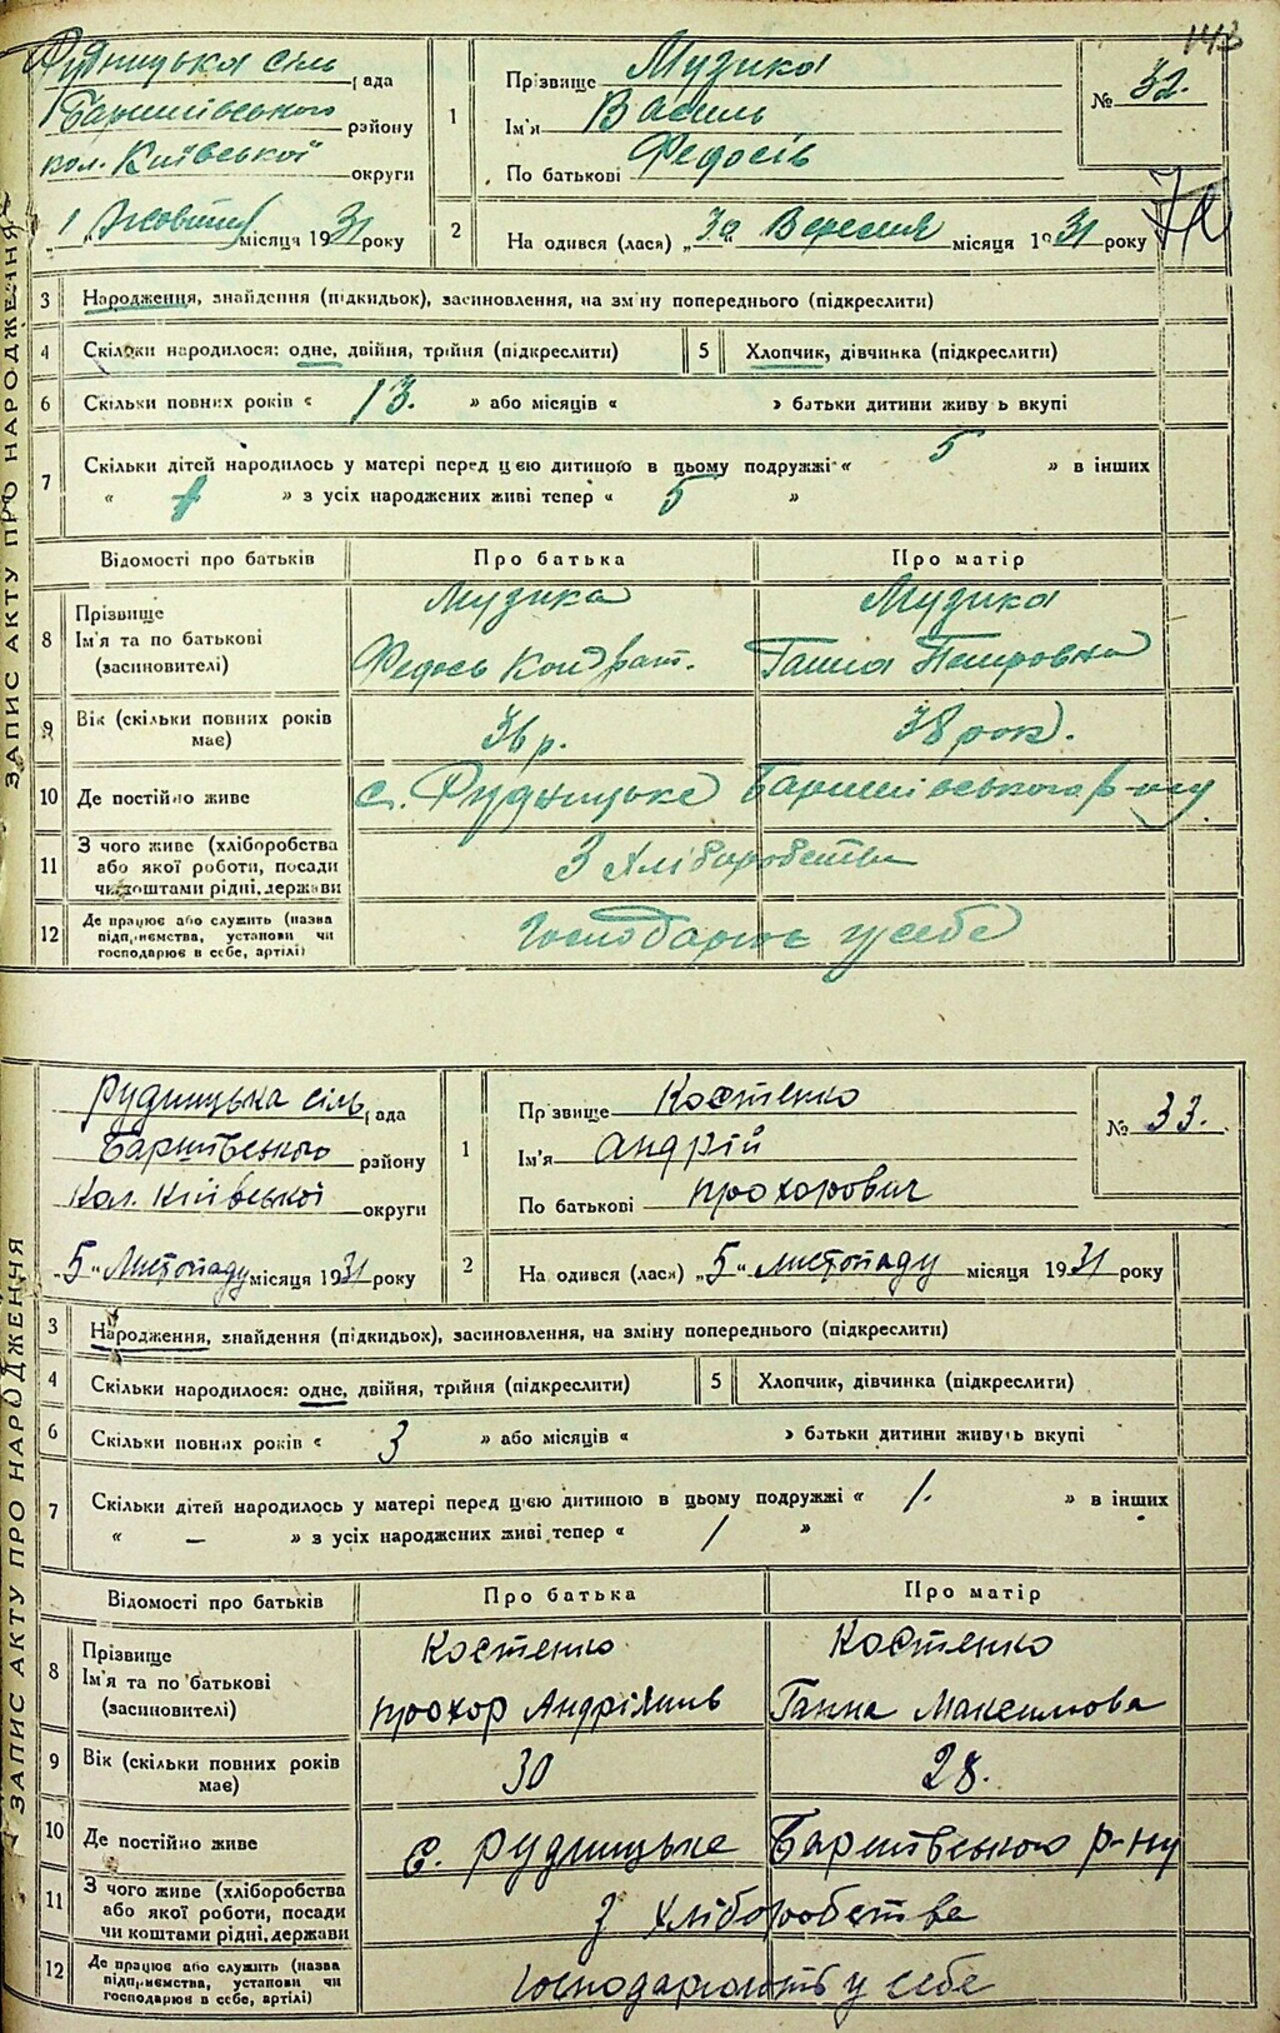 143
ЗАПИС АКТУ ПРО НАРОДЖЕННЯ
Рудницька сіль рада
Баришівського району
кол. Київської округи
„1“ Жовтня місяця 1931 року
1
Прізвище Музика
Ім'я Василь
По батькові Федосів
№ 32.
2
На одився (лася) „30“ Вересня місяця 1931 року
3 Народження, знайдення (підкидьок), засиновлення, на зміну попереднього (підкреслити)
4 Скільки народилося: одне, двійня, трійня (підкреслити) 5 Хлопчик, дівчинка (підкреслити)
6 Скільки повних років « 13. » або місяців « » батьки дитини живуть вкупі
7 Скільки дітей народилось у матері перед цією дитиною в цьому подружжі « 5 » в інших
« » з усіх народжених живі тепер « 5 »
Відомості про батьків Про батька Про матір
8 Прізвище
Ім'я та по батькові
(засиновителі)
Музика
Федось Кондрат.
Музика
Ганна Петровна
9 Вік (скільки повних років має) 36 р. 38 рок.
10 Де постійно живе с. Рудницьке Баришівського р-ну
11 З чого живе (хліборобства
або якої роботи, посади
чи коштами рідні, держави
З хліборобства
12 Де працює або служить (назва
підприємства, установи чи
господарює в себе, артілі)
Господарює у себе
ЗАПИС АКТУ ПРО НАРОДЖЕННЯ
Рудницька сіль рада
Баришівського району
Кол. Київської округи
„5“ Листопаду місяця 1931 року
1
Прізвище Костенко
Ім'я Андрій
По батькові Прохорович
№ 33.
2
На одився (лася) „5“ листопаду місяця 1931 року
3 Народження, знайдення (підкидьок), засиновлення, на зміну попереднього (підкреслити)
4 Скільки народилося: одне, двійня, трійня (підкреслити) 5 Хлопчик, дівчинка (підкреслити)
6 Скільки повних років « 3 » або місяців « » батьки дитини живуть вкупі
7 Скільки дітей народилось у матері перед цією дитиною в цьому подружжі « 1. » в інших
« – » з усіх народжених живі тепер « 1 »
Відомості про батьків Про батька Про матір
8 Прізвище
Ім'я та по батькові
(засиновителі)
Костенко
Прохор Андріянів
Костенко
Ганна Максимова
9 Вік (скільки повних років має) 30 28.
10 Де постійно живе с. Рудницьке Баришівського р-ну
11 З чого живе (хліборобства
або якої роботи, посади
чи коштами рідні, держави
З хліборобства
12 Де працює або служить (назва
підприємства, установи чи
господарює в себе, артілі)
Господарюють у себе